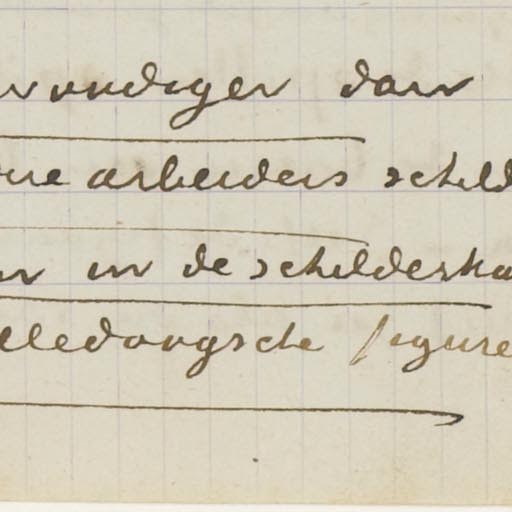 voudiger dan
die arbeiders schild
en in de schilderku
lledaagsche figure